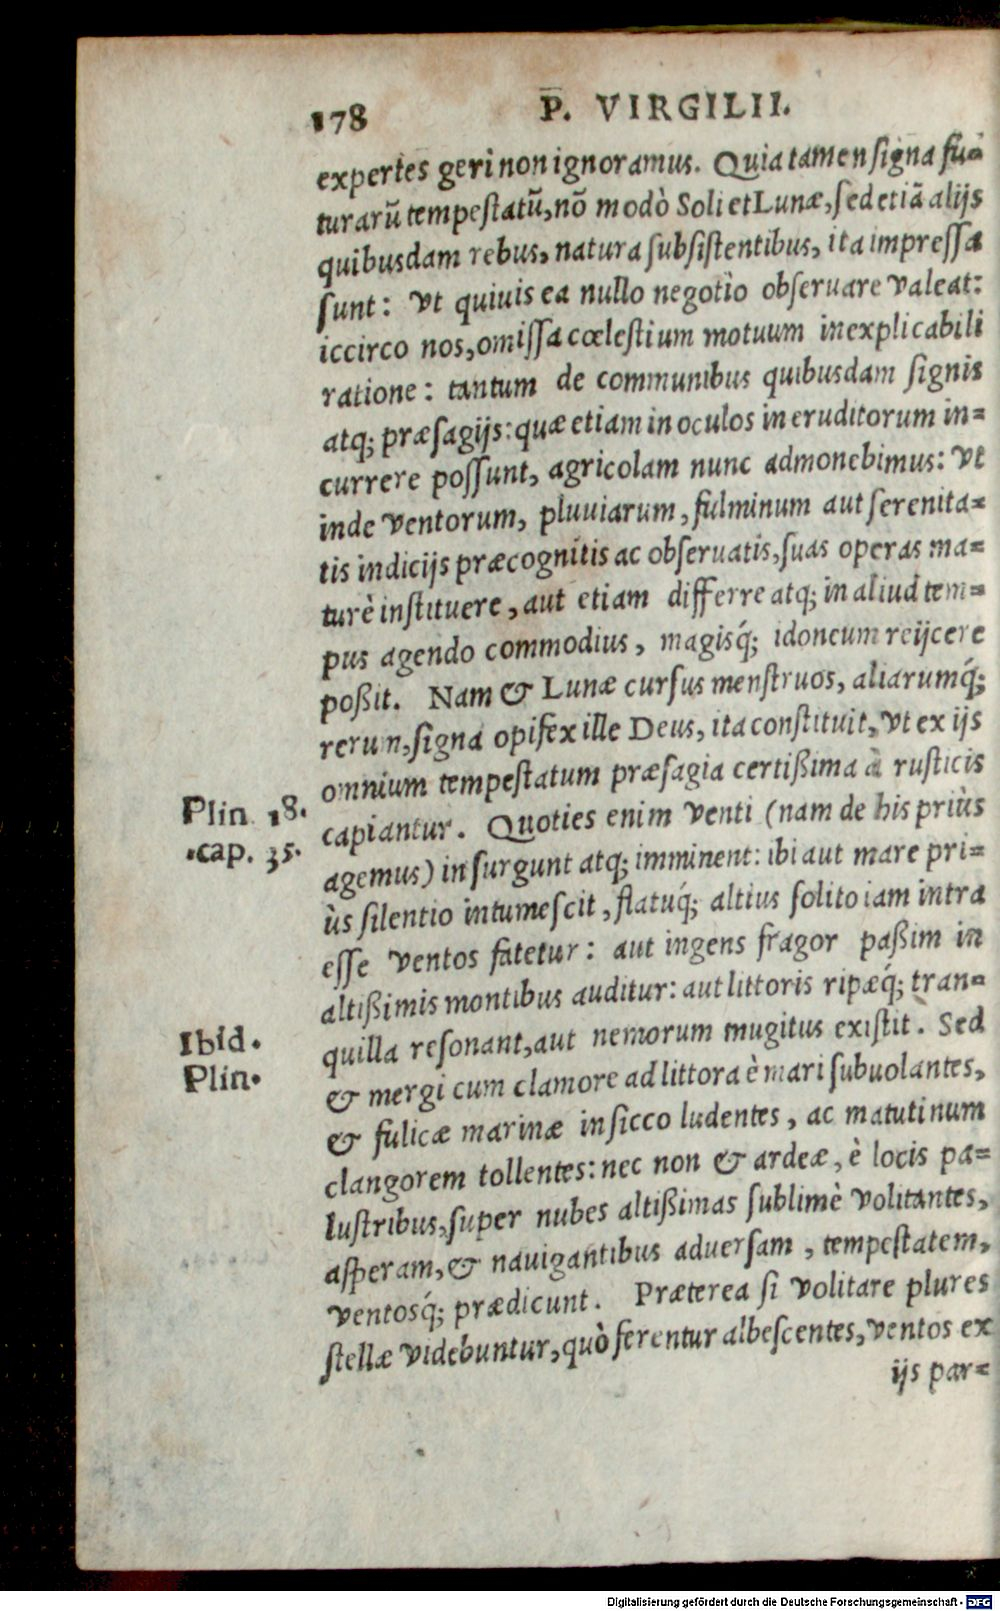 178 P. VIRGILII.
expertes geri non ignoramus. Quia tamen signa fu-
turarũ tempestatũ, nõ modò Soli et Lunæ, sed etiã alijs
quibusdam rebus, natura subsistentibus, ita impressa
sunt: vt quiuis ea nullo negotio obseruare valeat:
iccirco nos, omissa cœlestium motuum inexplicabili
ratione: tantum de communibus quibusdam signis
atq; præsagijs: quæ etiam in oculos ineruditorum in-
currere possunt, agricolam nunc admonebimus: vt
inde ventorum, pluuiarum, fulminum aut serenita-
tis indicijs præcognitis ac obseruatis, suas operas ma-
turè instituere, aut etiam differre atq; in aliud tem-
pus agendo commodius, magisq́; idoneum reijcere
poßit. Nam & Lunæ cursus menstruos, aliarumq́;
rerum, signa opifex ille Deus, ita constituit, vt ex ijs
omnium tempestatum præsagia certißima à rusticis
Plin. 18.
cap. 35.
capiantur. Quoties enim venti (nam de his priùs
agemus) insurgunt atq; imminent: ibi aut mare pri-
ùs silentio intumescit, flatuq́; altius solito iam intra
esse ventos fatetur: aut ingens fragor paßim in
altißimis montibus auditur: aut littoris ripæq́; tran-
Ibid.
Plin.
quilla resonant, aut nemorum mugitus existit. Sed
& mergi cum clamore ad littora è mari subuolantes,
& fulicæ marinæ in sicco ludentes, ac matutinum
clangorem tollentes: nec non & ardeæ, è locis pa-
lustribus, super nubes altißimas sublimè volitantes,
asperam, & nauigantibus aduersam, tempestatem,
ventosq́; prædicunt. Præterea si volitare plures
stellæ videbuntur, quò ferentur albescentes, ventos ex
ijs par-
Digitalisierung gefördert durch die Deutsche Forschungsgemeinschaft - DFG